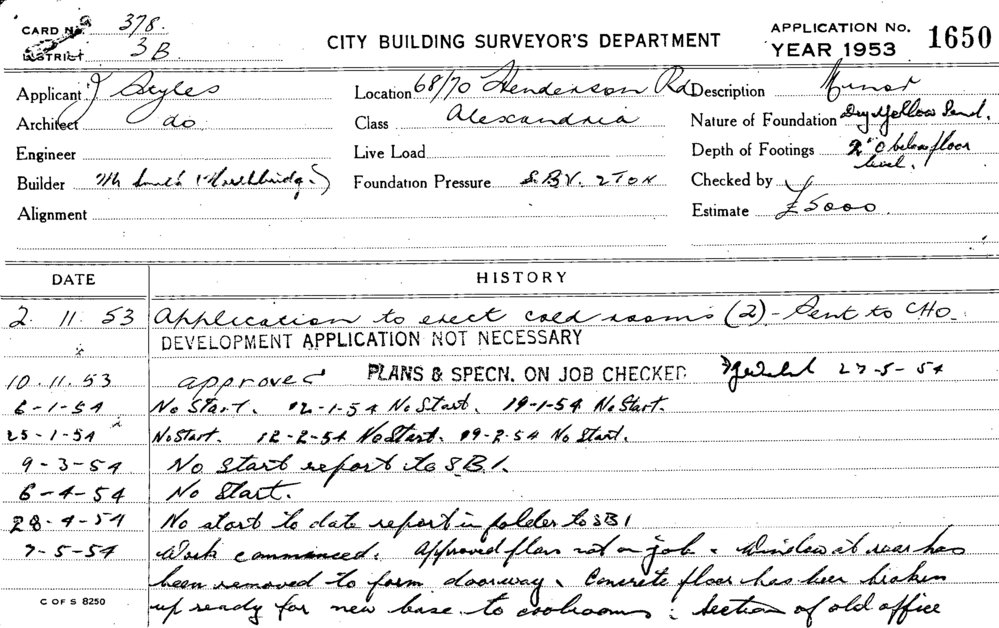 CARD No. 378.
DISTRICT 3B
CITY BUILDING SURVEYOR'S DEPARTMENT
APPLICATION No. 1650
YEAR 1953
Applicant J Seyles
Location 68/70 Henderson Rd
Description Minor
Architect do
Class Alexandria
Nature of Foundation Dry Yellow Sand.
Engineer
Live Load
Depth of Footings 2'0 below floor level.
Builder
Foundation Pressure S.B.V. 2 TON
Checked by
Alignment
Estimate £5000
DATE HISTORY
2. 11. 53 Application to erect cold rooms (2) - Sent to CHO
DEVELOPMENT APPLICATION NOT NECESSARY
10. 11. 53 approved PLANS & SPECN. ON JOB CHECKED 27-5-54
6-1-54 No Start. 12-1-54 No Start. 19-1-54 No Start.
25-1-54 No Start. 12-2-54 No Start. 19-2-54 No Start.
9-3-54 No Start report to S.B.I.
6-4-54 No Start.
28-4-54 No start to date report in folder to SBI
7-5-54 Work commenced. Approved plan not on job. Window at rear has
been removed to form doorway. Concrete floor has been broken
up ready for new base to coolrooms: Section of old office
C OF S 8250